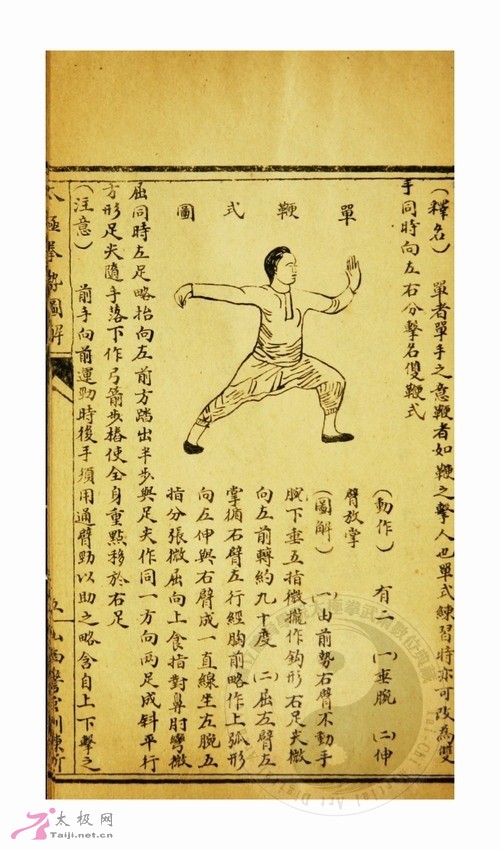 (釋名) 單者單手之意鞭者如鞭之擊人也單式練習時亦可改為雙
手同時向左右分擊名雙鞭式
單鞭式圖
(動作) 有二 (一)垂腕 (二)伸
臂放掌
(圖解) (一)由前勢右臂不動手
腕下垂五指微攏作鈎形右足尖微
向左前轉約九十度 (二)屈左臂左
掌循右臂左行經胸前略作上弧形
向左伸與右臂成一直線坐左腕五
指分張微屈向上食指對鼻肘彎微
屈同時左足略抬向左前方踏出半步與足尖作同一方向兩足成斜平行
方形足尖隨手落下作弓箭步樁使全身重點移於右足
(注意) 前手向前運勁時後手須用通臂勁以助之略含自上下擊之
太極拳勢圖解
五
山西警官訓練所
太极网
Taiji.net.cn